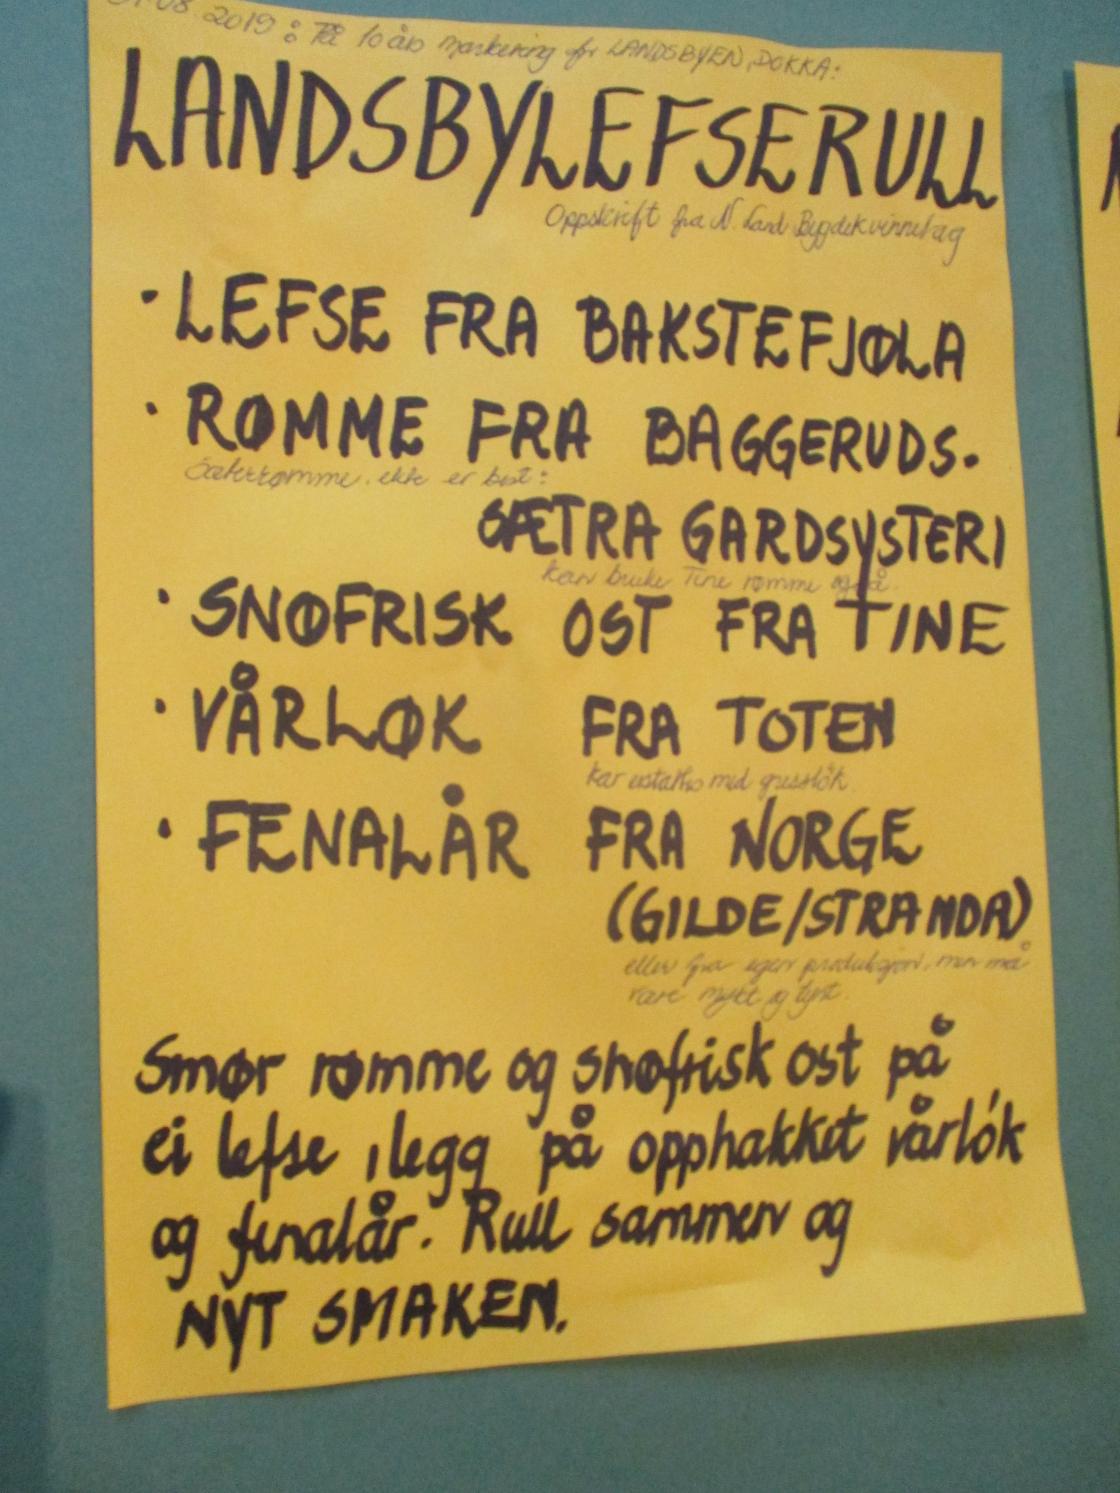 08.2019: På 10 års markering for LANDSBYEN, DOKKA:
LANDSBYLEFSERULL
Oppskrift fra N. Land Bygdekvinnelag
• LEFSE FRA BAKSTEFJØLA
• RØMME FRA BAGGERUDS.
Seterrømme. ikke er best:
SÆTRA GARDSYSTERI
kan bruke Tine rømme også.
• SNØFRISK OST FRA TINE
• VÅRLØK FRA TOTEN
kan med gressløk.
• FENALÅR FRA NORGE
(GILDE/STRANDA)
eller fra egen produksjon, men må
være mykt og tynt.
Smør rømme og snøfrisk ost på
ei lefse, legg på opphakket vårløk
og fenalår. Rull sammen og
NYT SMAKEN.